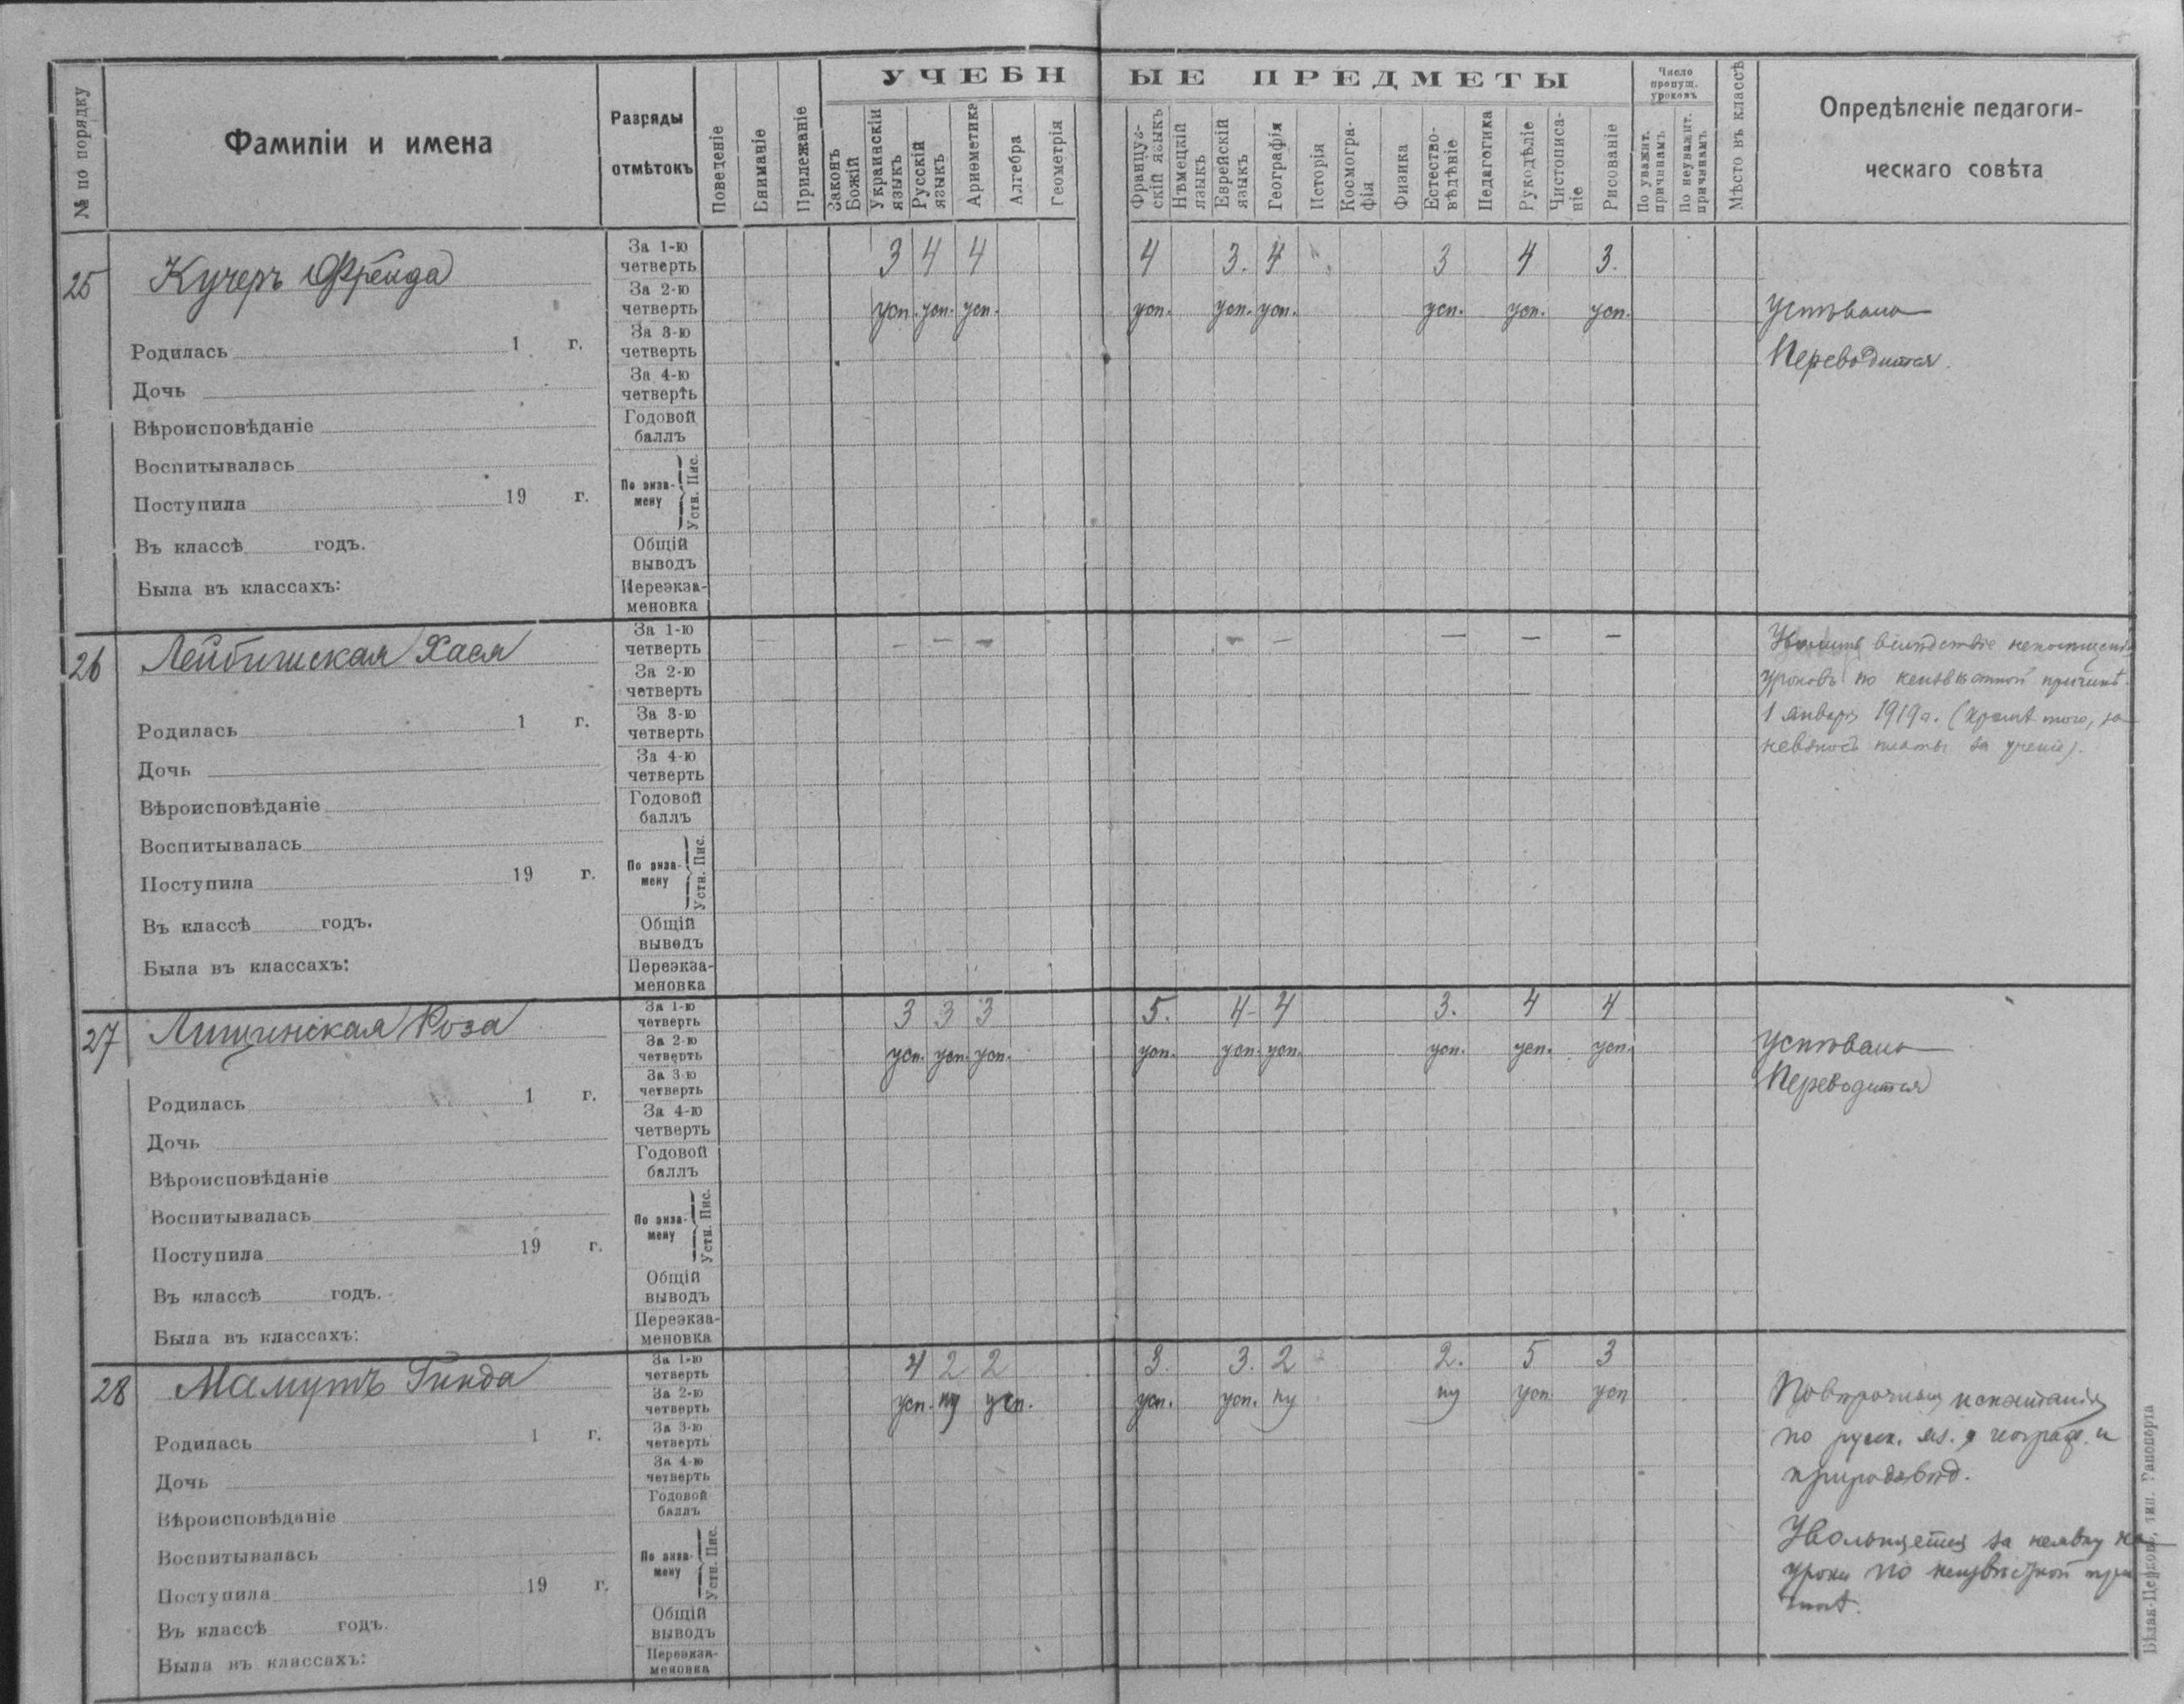 УЧЕБНЫЕ ПРЕДМЕТЫ
№ по порядку
Фамиліи и имена
Разряды отмѣтокъ
Поведеніе
Вниманіе
Прилежаніе
Законъ Божій
Украинскій языкъ
Русскій языкъ
Ариѳметика
Алгебра
Геометрія
Француз-скій языкъ
Нѣмецкій языкъ
Еврейскій языкъ
Географія
Исторія
Космогра-фія
Физика
Естество-вѣдѣніе
Педагогика
Рукодѣліе
Чистописа-ніе
Рисованіе
Число пропущ. уроковъ
По уважит. причинамъ
По неуважит. причинамъ
Мѣсто въ классѣ
Опредѣленіе педагоги-
ческаго совѣта
25 Кучеръ Фрейда
За 1-ю четверть 3 4 4 4 3. 4 3 4 3.
За 2-ю четверть усп. усп. усп. усп. усп. усп. усп. усп. усп.
Успѣвала
Переводится.
За 3-ю четверть
Родилась 1 г.
За 4-ю четверть
Дочь
Годовой баллъ
Вѣроисповѣданіе
Воспитывалась
По экза-мену Устн. Пис.
Поступила 19 г.
Въ классѣ годъ.
Общій выводъ
Была въ классахъ:
Переэкза-меновка
26 Лейбишская Хася
За 1-ю четверть — — — — — — — —
вслѣдствіе непосѣщенія
уроковъ по неизвѣстной причинѣ
1 января 1919 г. (кромѣ того, за
невзносъ платы за ученіе).
За 2-ю четверть
За 3-ю четверть
Родилась 1 г.
За 4-ю четверть
Дочь
Годовой баллъ
Вѣроисповѣданіе
Воспитывалась
По экза-мену Устн. Пис.
Поступила 19 г.
Въ классѣ годъ.
Общій выводъ
Была въ классахъ:
Переэкза-меновка
27 Лищинская Роза
За 1-ю четверть 3 3 3 5. 4 4 3. 4 4
За 2-ю четверть усп. усп. усп. усп. усп. усп. усп. усп. усп.
Успѣвала
Переводится
За 3-ю четверть
Родилась 1 г.
За 4-ю четверть
Дочь
Годовой баллъ
Вѣроисповѣданіе
Воспитывалась
По экза-мену Устн. Пис.
Поступила 19 г.
Въ классѣ годъ.
Общій выводъ
Была въ классахъ:
Переэкза-меновка
28 Мамутъ Гинда
За 1-ю четверть 4 2 2 3. 3. 2 2. 5 3
За 2-ю четверть усп. ну усп. усп. усп. ну ну усп. усп
испытанія
по русск. яз. географ. и
природовѣд.
Увольняется за неявку на
уроки по неизвѣстной при
чинѣ.
За 3-ю четверть
Родилась 1 г.
За 4-ю четверть
Дочь
Годовой баллъ
Вѣроисповѣданіе
Воспитывалась
По экза-мену Устн. Пис.
Поступила 19 г.
Въ классѣ годъ.
Общій выводъ
Была въ классахъ:
Переэкза-меновка
Бѣлая-Церковь, тип. Рапопорта